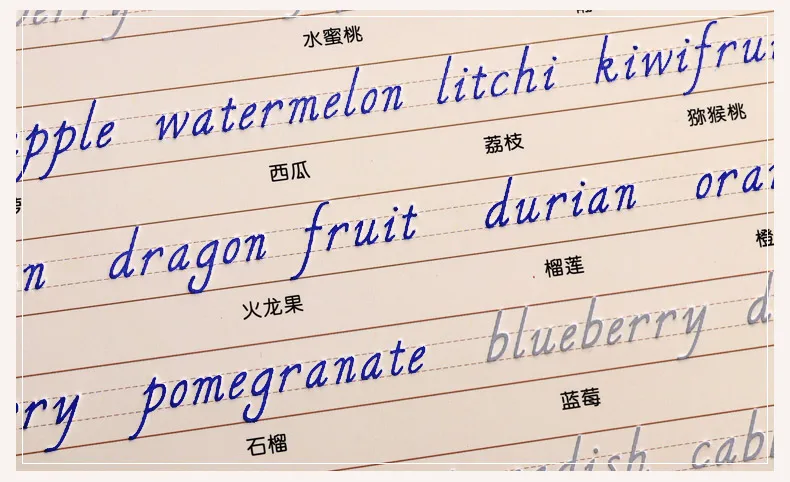 erry
水蜜桃
pple watermelon litchi kiwifrui
西瓜 荔枝 猕猴桃
n dragon fruit durian oran
火龙果 榴莲 橙
rry pomegranate blueberry d
石榴 蓝莓
adish cabb